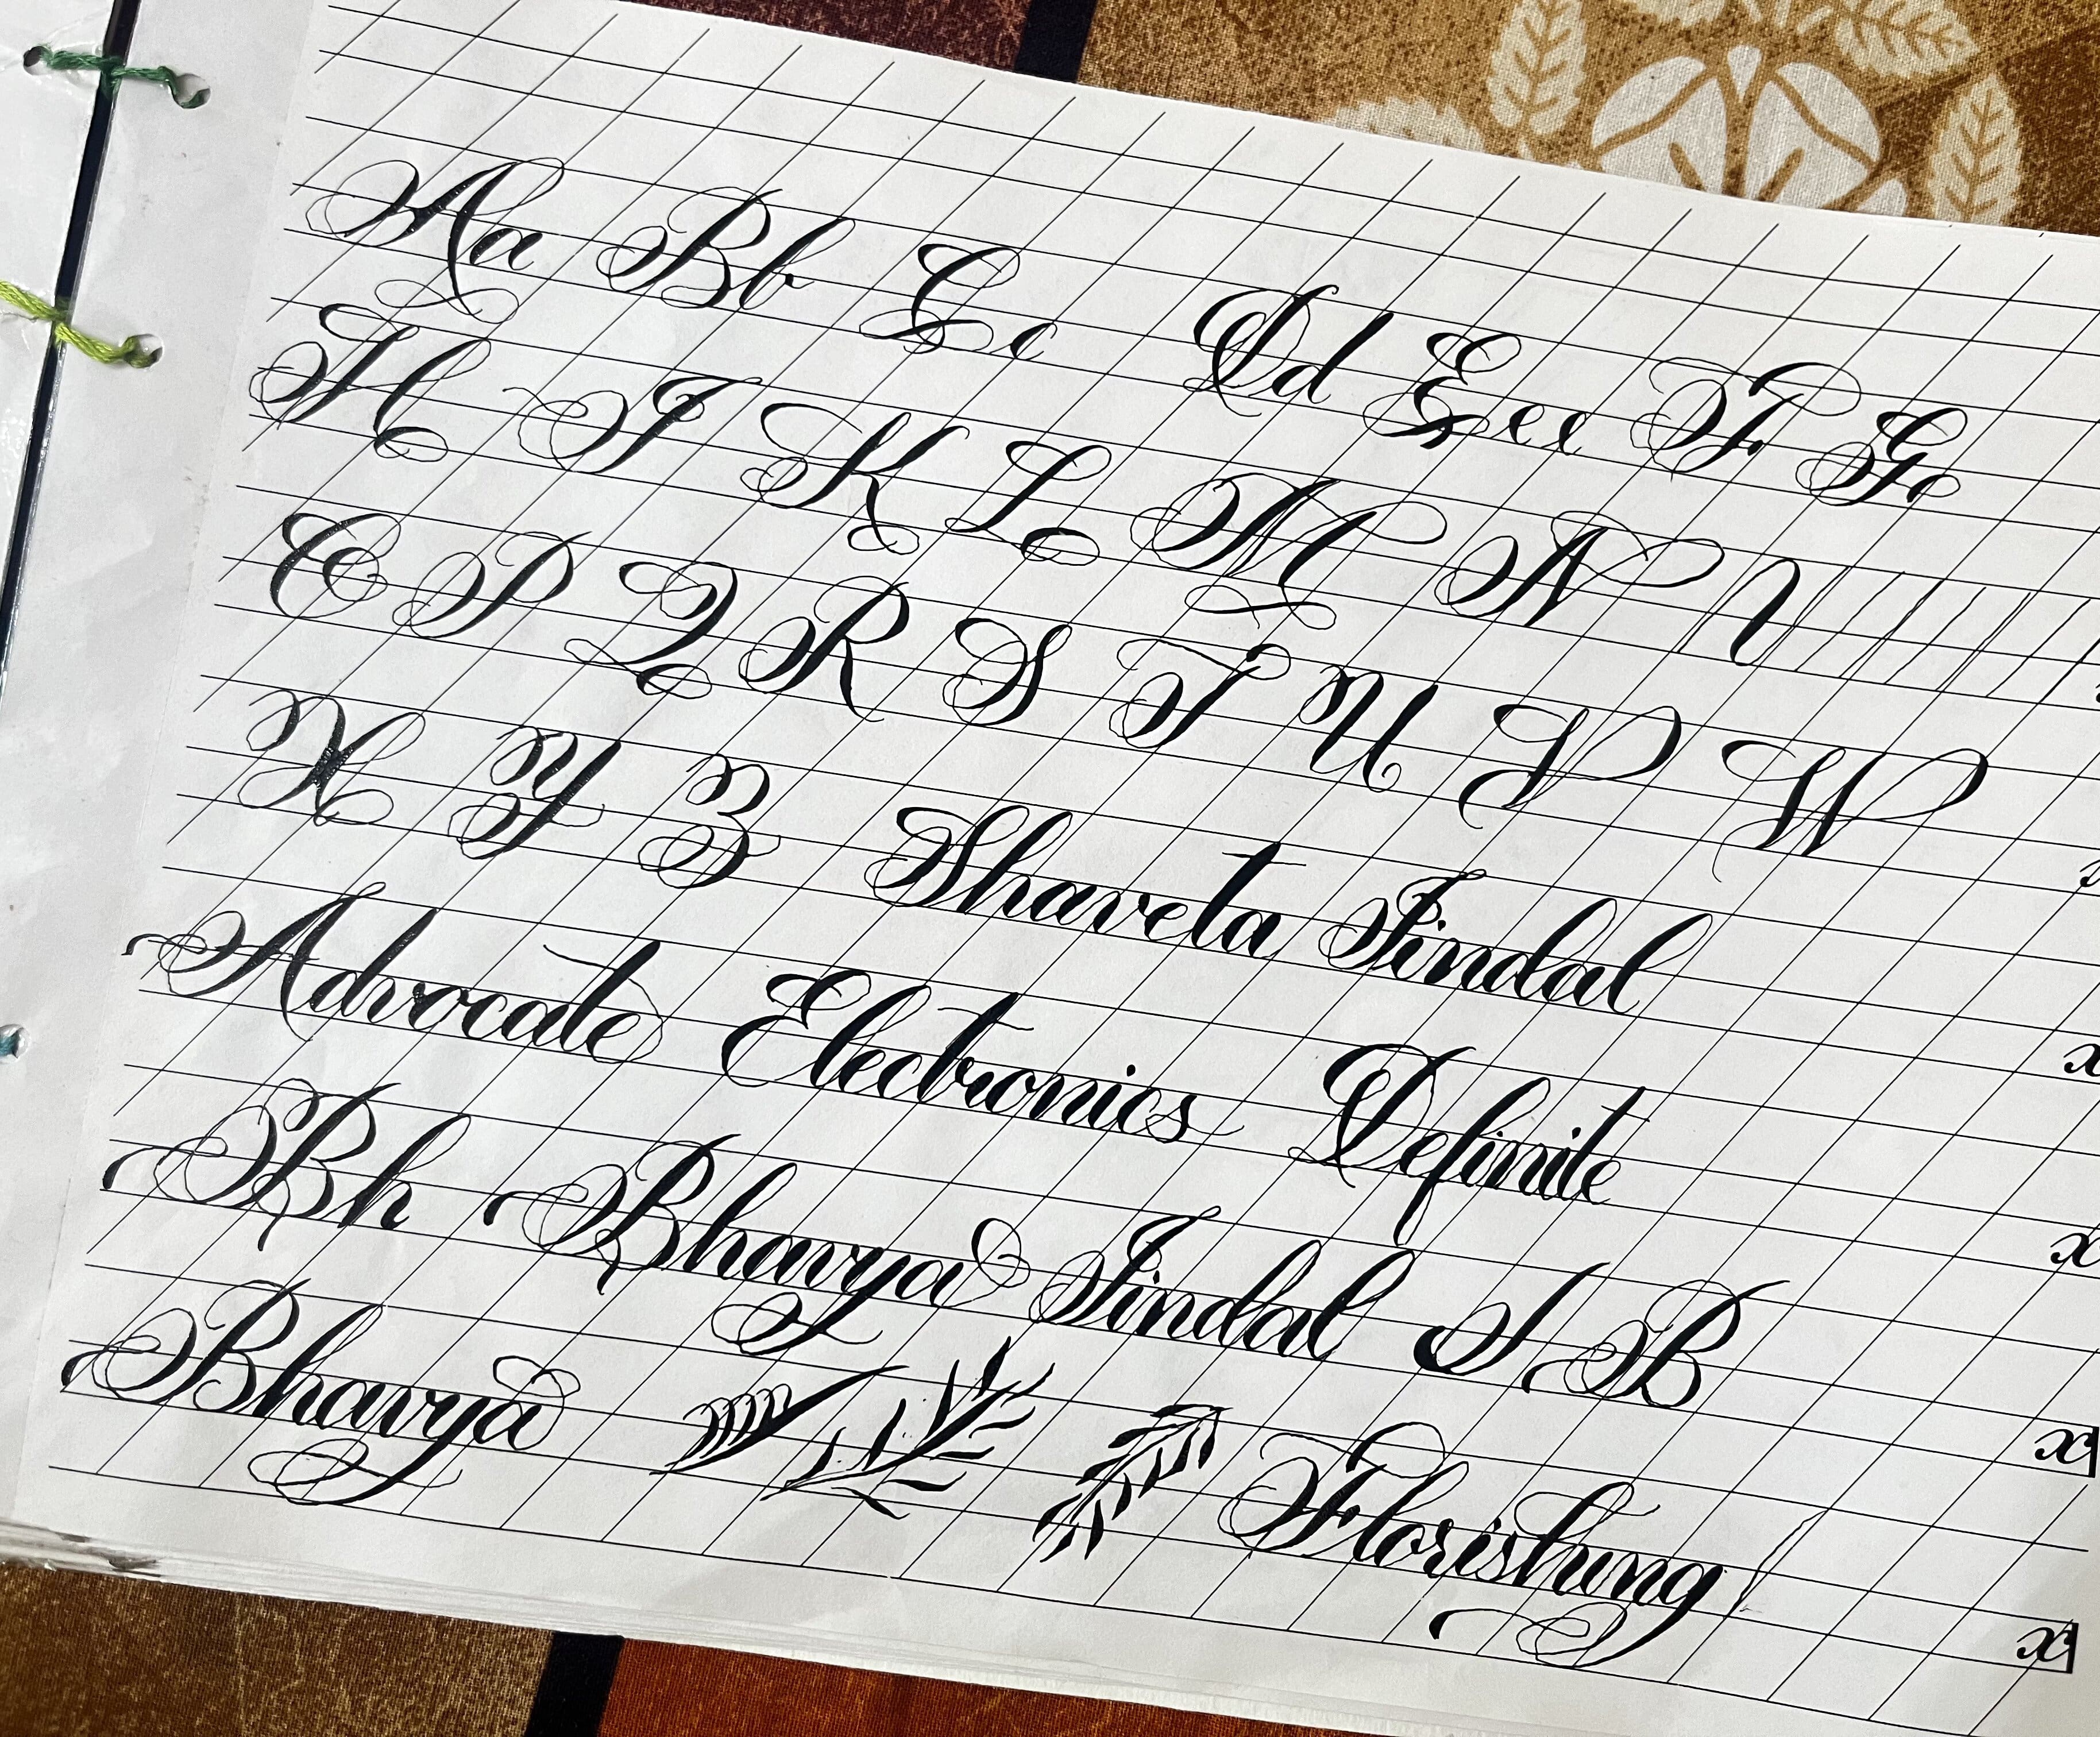 Aa Bb Cc Dd Eee F G
H I K L M N
O P Q R S T U V W
X Y Z Shaveta Jindal
Advocate Electronics Definite x
Bh Bhavya Jindal J B x
Bhavya Florishing x
x